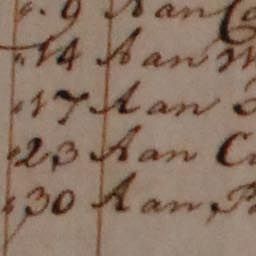 9 Aan
14 Aan
17 Aan
23 Aan
30 Aan